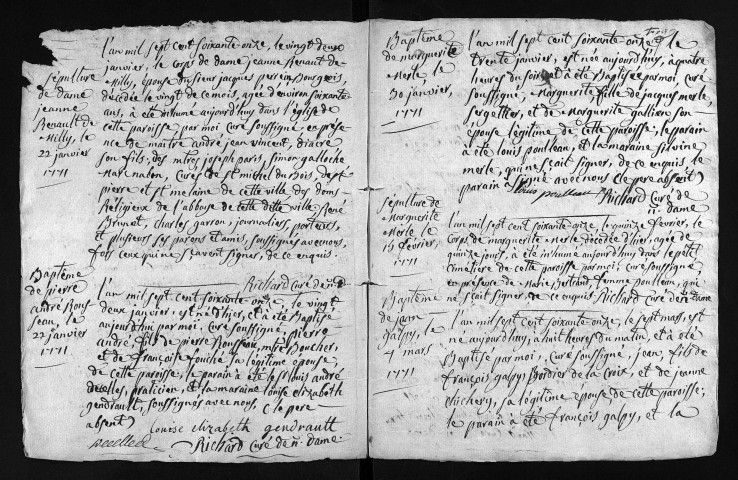 sépulture
de dame
jeanne
Renault de
Milly, le
22 janvier
1771
L'an mil sept cent soixante onze, le vingt deux
janvier, le corps de dame jeanne Renault de
Milly, épouse du sieur jacques Bourgeois,
décédée le vingt de ce mois, agée d'environ soixante
ans, a été inhumé aujourd'huy dans l'église de
cette paroisse par moi curé soussigné, en prése
nce de maitre andré jean vincent, diacre
son fils, des mtres joseph paris, simon galloche
marc nabon, curés de st michel du Bois, de st
pierre et st melaine de cette ville, des doms
Religieux de l'abbaye de cette ditte ville, René
Brunet, charles garron, journaliers, porteurs,
et plusieurs ses parens et amis, soussignés avec nous,
fors ceux qui ne sçavent signer, de ce enquis.
Richard curé de n. d.
Baptême
de pierre
andré Rous
seau, le
22 janvier
1771
L'an mil sept cent soixante onze, le vingt
deux janvier, est né d'hier, et a été Baptisé
aujourd'huy par moi, curé soussigné, pierre
andré, fils de pierre Rousseau, mtre Boucher,
et de françoise fouché sa légitime épouse
de cette paroisse; le parain a été le sr louis andré
praticien, et la maraine louise elizabeth
gendrault, soussignés avec nous, le pere
absent
Louise elizabeth gendrault
Richard curé de n. dame.
Baptême
de marguerite
Merle, le
30 janvier,
1771
L'an mil sept cent soixante onze, le
trente janvier, est née aujourd'huy, à quatre
heures du soir et a été Baptisée par moi, curé
soussigné, Marguerite fille de jacques merle,
sergettier, et de Marguerite gallien son
épouse légitime de cette paroisse; le parain
a été louis pouleau et la maraine silvine
merle, qui ne sçait signer, de ce enquis le
parain a signé avec nous le pere absent
louis pouleau Richard curé de
n. dame
sépulture de
Marguerite
Merle, le
15 février,
1771
L'an mil sept cent soixante onze, le quinze février, le
Corps de marguerite Merle, décédée d'hier, agée de
quinze jours, a été inhumé aujourd'huy dans le petit
cimetiere de cette paroisse par moi, curé soussigné,
en présence de Marie Bertrand, femme pouleau, qui
ne sçait signer, de ce enquis Richard curé de n. dame
Baptême
de jean
Galpy, le
1771
L'an mil sept cent soixante onze, le sept mars, est
né aujourd'huy, à huit heures du matin, et a été
Baptisé par moi, curé soussigné, jean, fils de
françois galpy, Bordier de la Croix, et de jeanne
sa légitime épouse de cette paroisse;
le parain a été françois galpy, et la